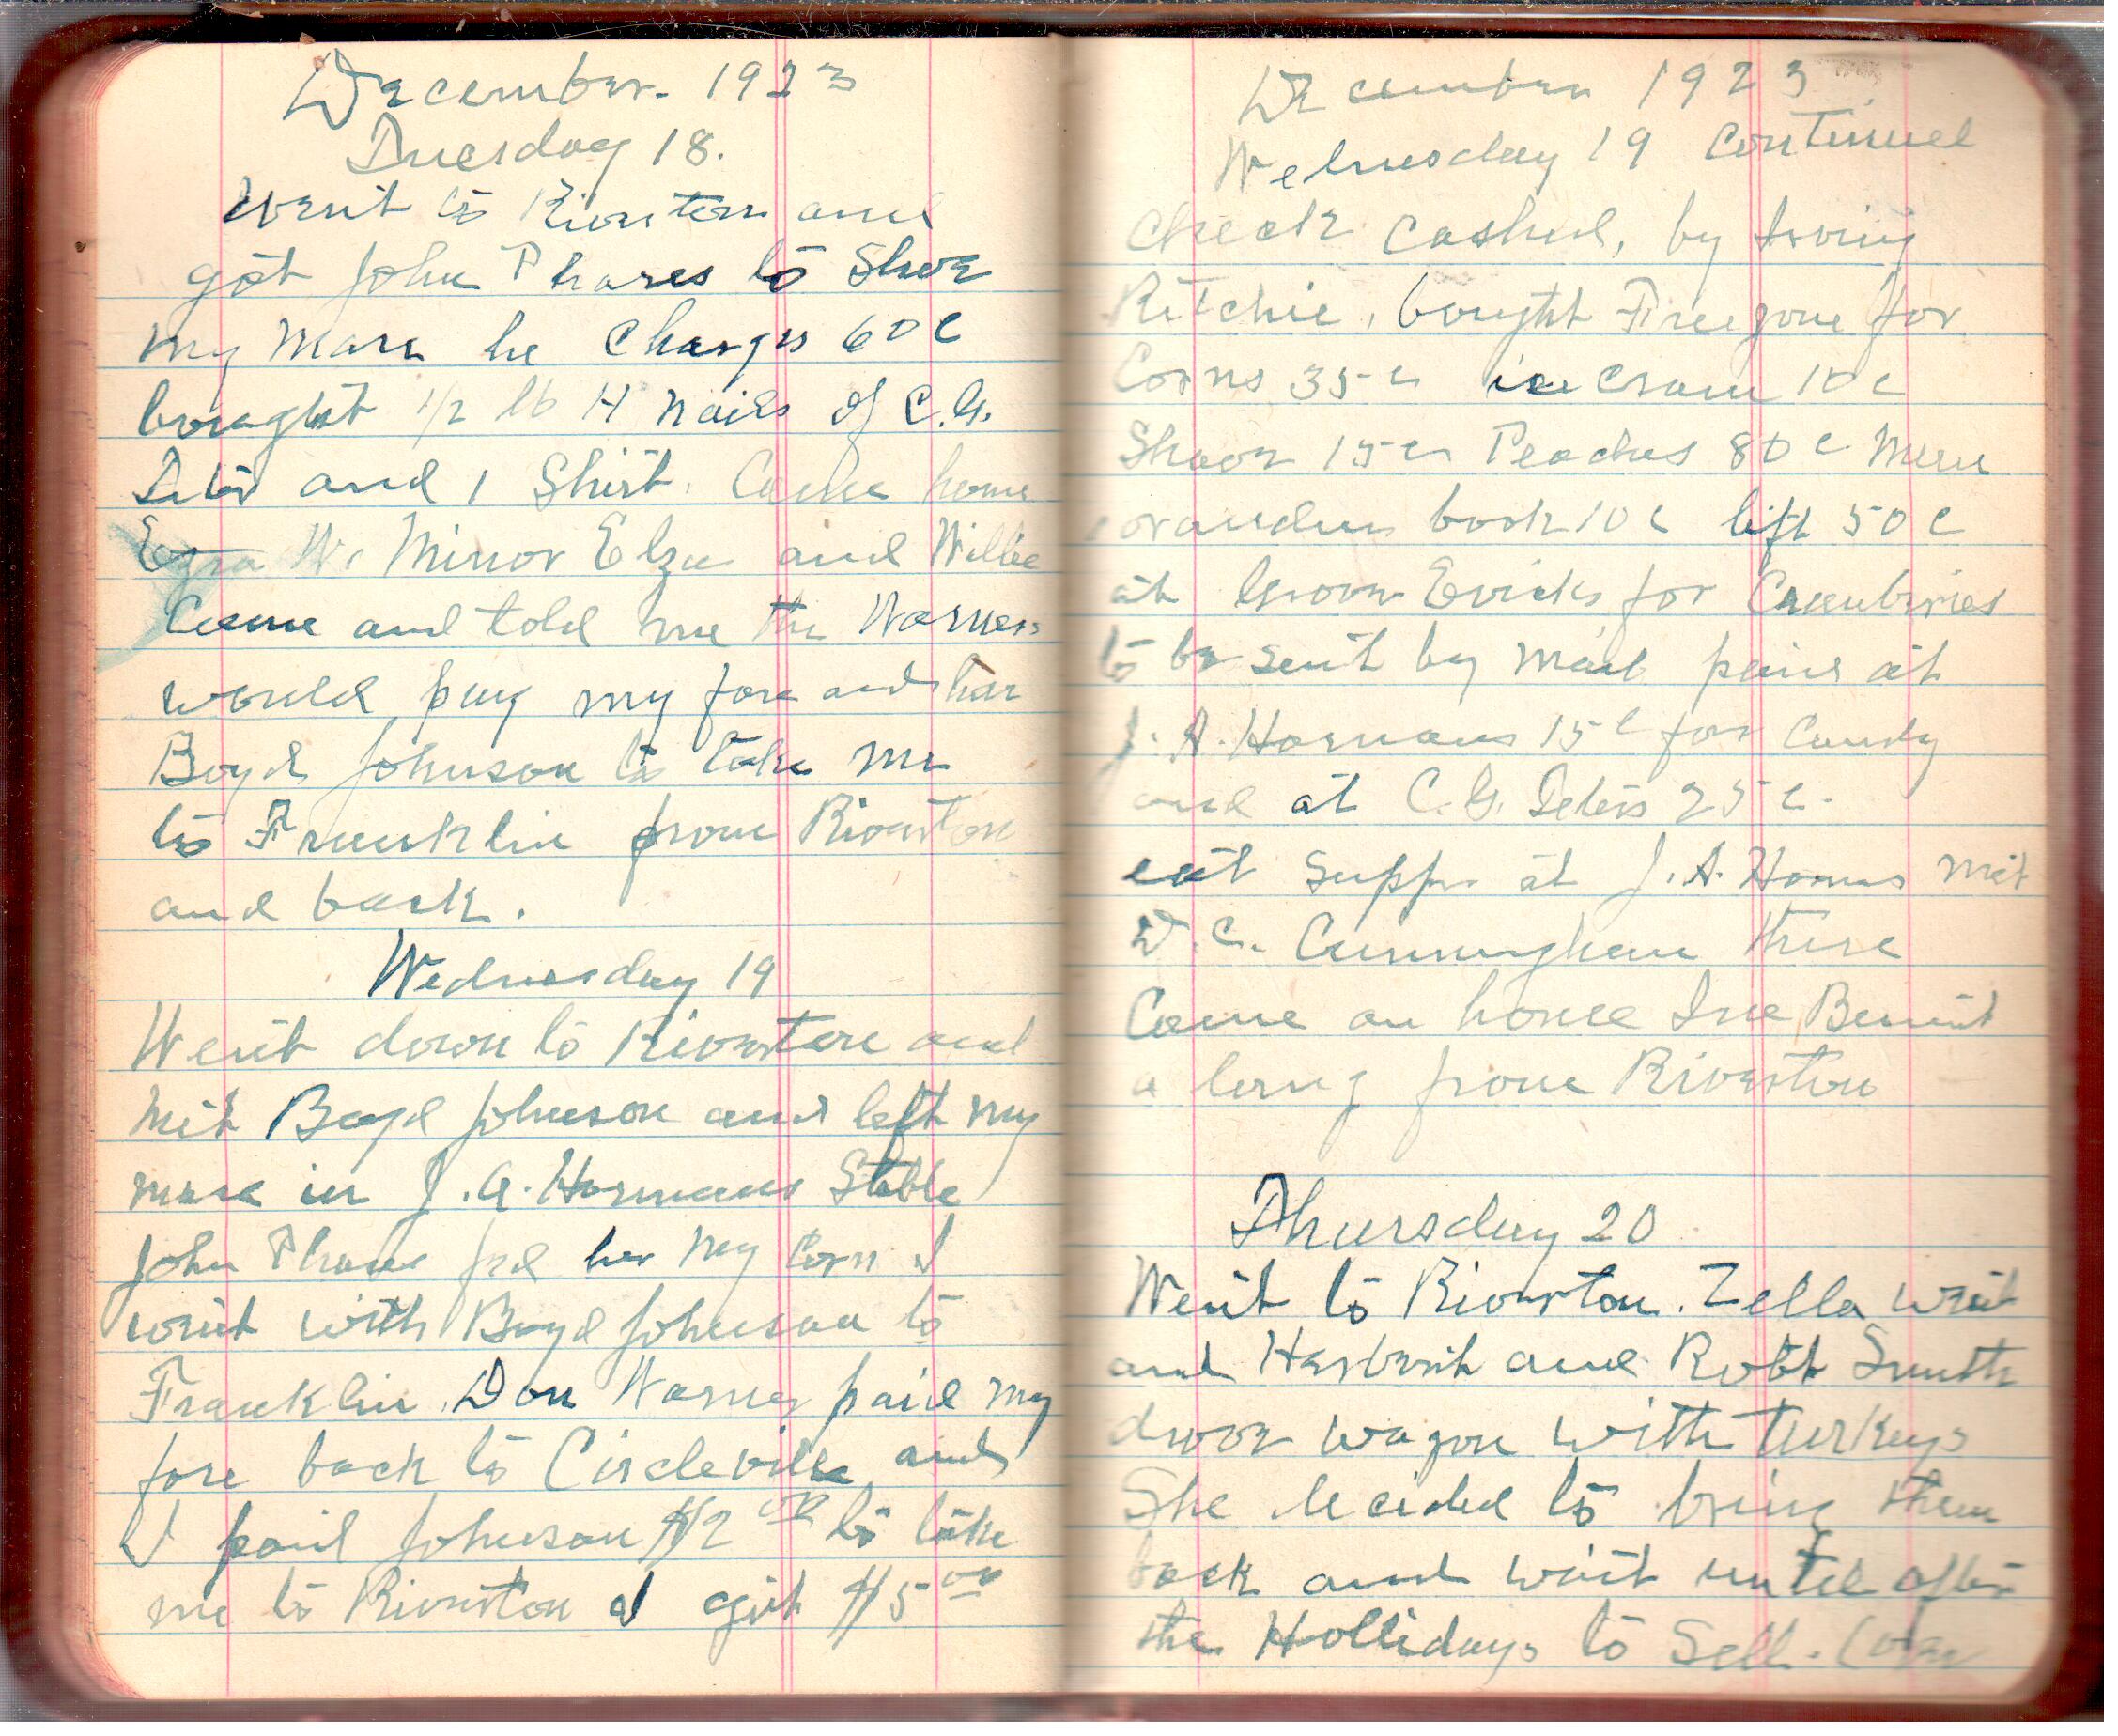 December. 1923
Tuesday 18.
Went to Riverton and
got John Phares to Shoe
my Mare he Charges 60 C
bought 1/2 lb H nails of C.G.
and 1 Shirt. Came home
Ezra W. Minor Elza and Willie
Came and told me the Warners
would pay my fare and
Boyd Johnson to take me
to Franklin from Riverton
and back.
Wednesday 19
Went down to Riverton and
met Boyd Johnson and left my
mare in J.A. Harmans Stable
John Phares fed her My corn I
went with Boyd Johnson to
Franklin. Don Warner paid my
fare back to Circleville and
I paid Johnson $2 00 to take
me to Riverton I got $5 00
December 1923
Wednesday 19 Continued
Check Cashed, by Irving
Ritchie, bought Freezone for
Corns 35 c ice Cream 10 c
15 c Peaches 80 c Mem
orandum book 10 c left 50 C
at Evicks for Cranberries
to be sent by Mail paid at
J. A. Harmans 15 c for Candy
and at C.G. 25 c.
eat Supper at J. A. Harmans met
D. C. Cunningham there
Came on home Bennett
a long from Riverton
Thursday 20
Went to Riverton. Zella went
and Herbert and Robt Smith
drove wagon with turkeys
She decided to bring them
back and wait until after
the Hollidays to Sell.